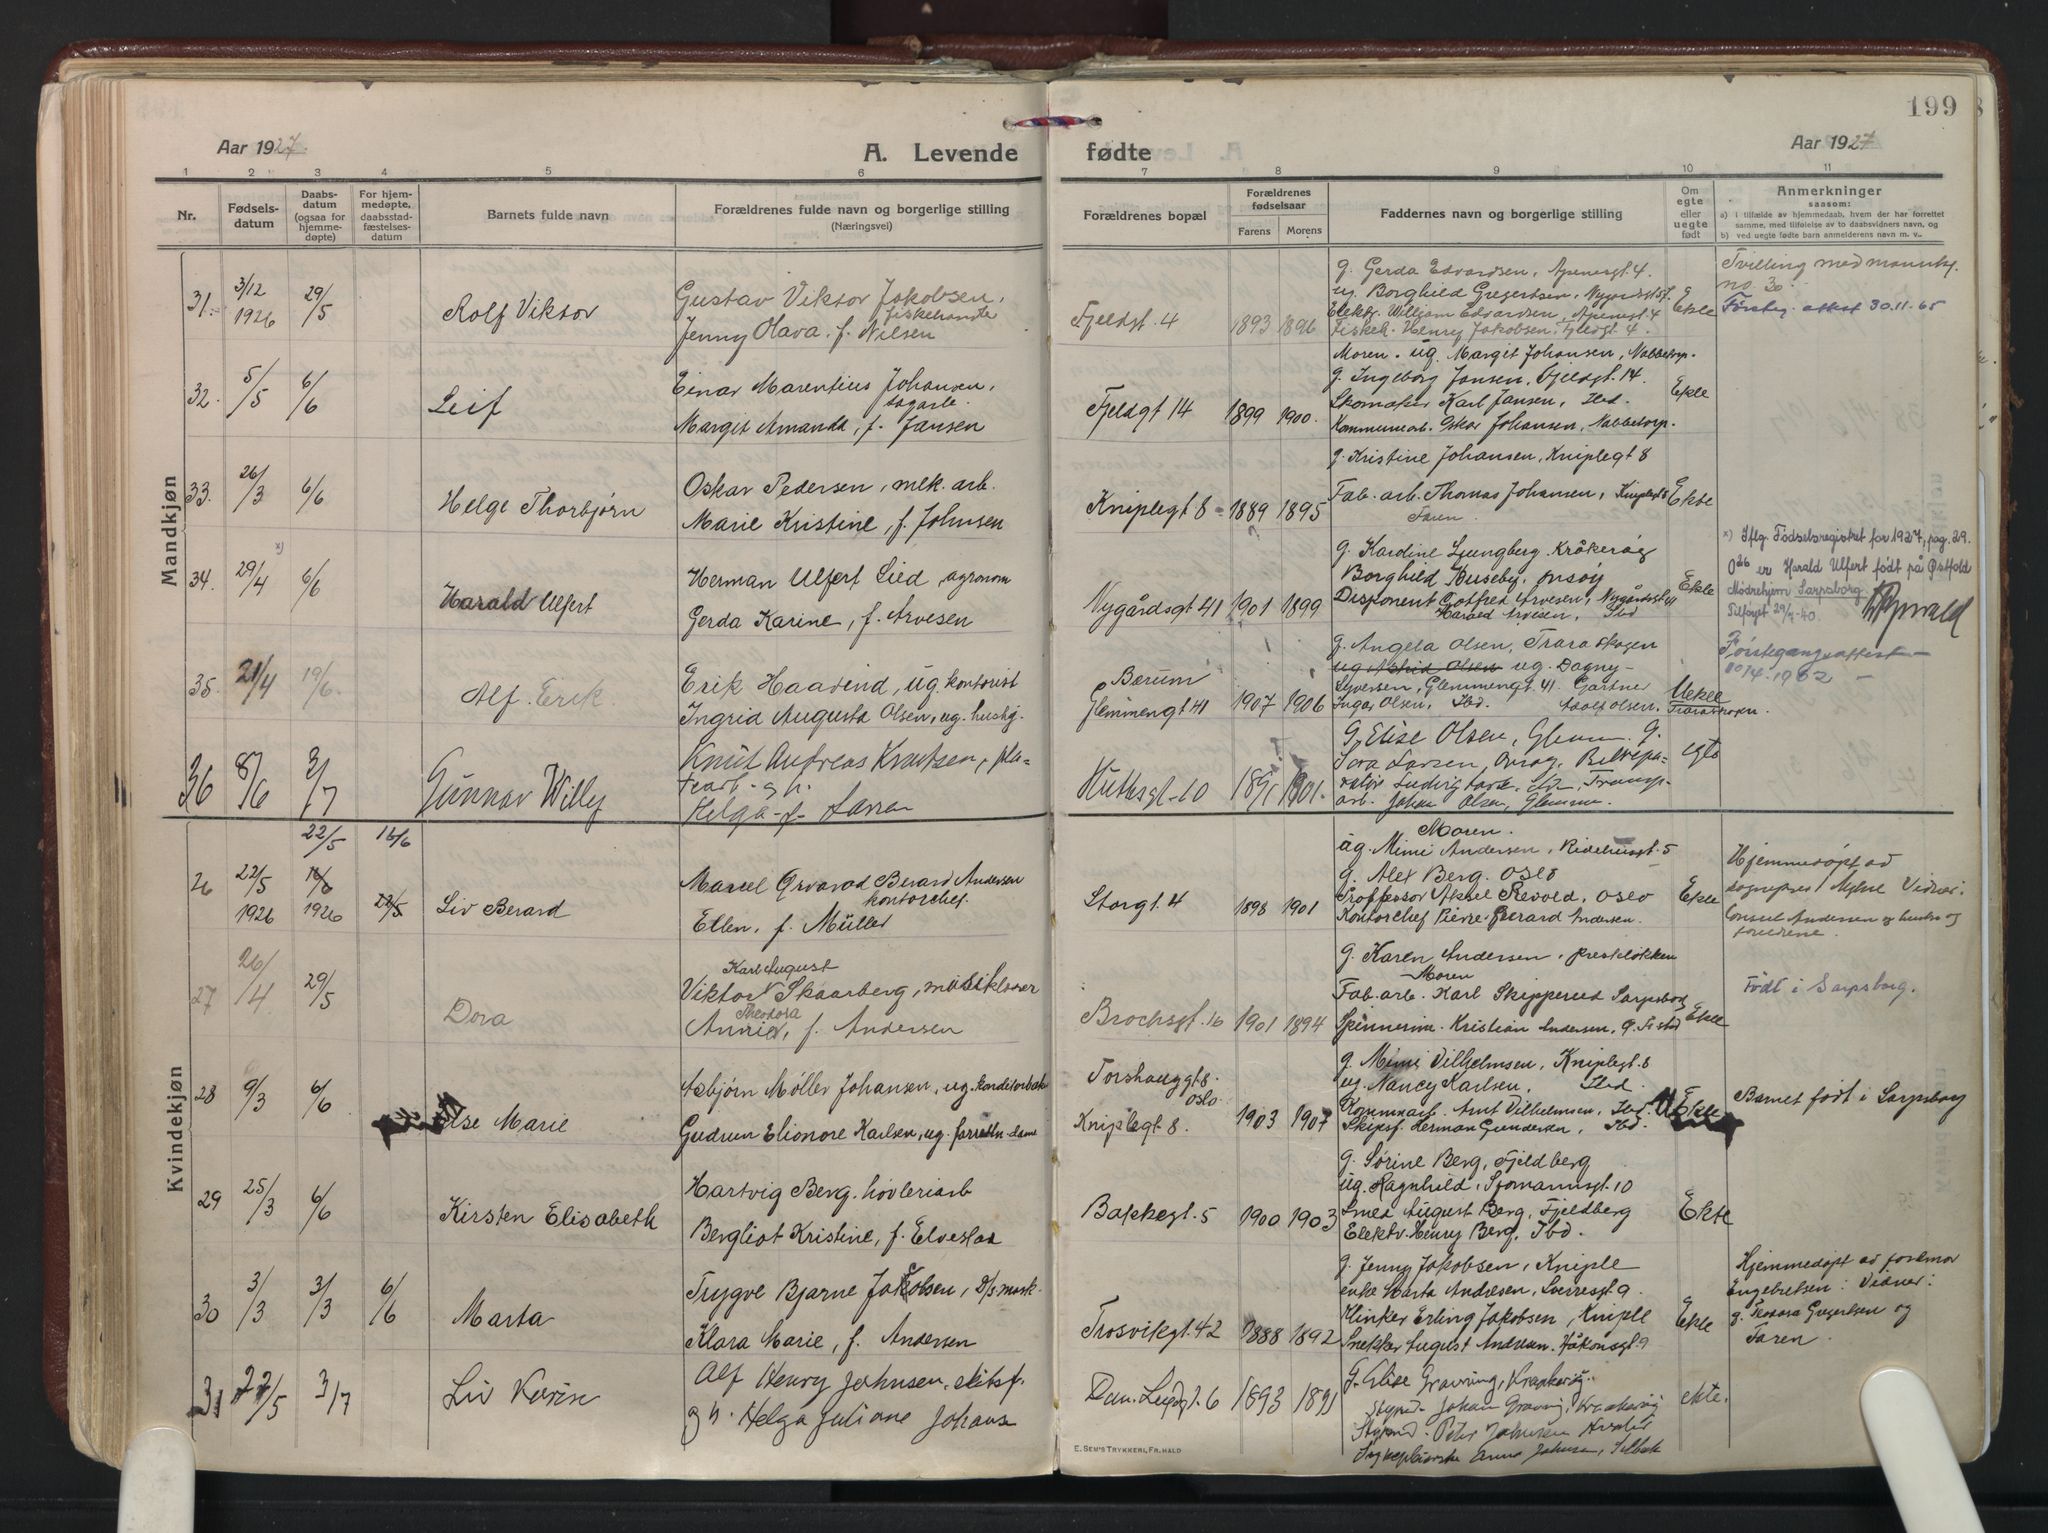 199
Aar 1927
A. Levende fødte
Aar 1927
1 2 3 4 5 6 7 8 9 10 11
Nr.
Fødsels-
datum
Daabs-
datum
(ogsaa for
hjemme-
døpte)
For hjem-
medøpte,
daabsstad-
fæstelses-
datum
Barnets fulde navn
Forældrenes fulde navn og borgerlige stilling
(Næringsvei)
Forældrenes bopæl
Forældrenes
fødselsaar
Farens Morens
Faddernes navn og borgerlige stilling
Om
egte
eller
uegte
født
Anmerkninger
saasom:
a) i tilfælde av hjemmedaab, hvem der har forrettet
samme, med tilføielse av to daabsvidners navn, og
b) ved uegte fødte barn anmelderens navn m. v.
Mandkjøn
31.
3/12
1926
29/5
Rolf Viktor
Gustav Viktor Jakobsen,
fiskehandler
Jenny Olava, f. Nilsen
Fjeldgt. 4
1893 1896
g. Gerda Edvardsen, Apenesgt. 4.
ug. Borghild Gregertsen, Nygårdsgt
Elektr. William Edvardsen, Apenesgt. 4
Fiskeh. Henry Jakobsen, Fjeldgt. 4.
Ekte
Tvilling med mannkj.
no. 30.
Førsteg. attest 30.11.65
32.
5/5
6/6
Leif
Einar Marentius Johansen,
sagarb.
Margit Amanda, f. Jansen
Fjeldgt 14
1899 1900.
Moren. ug. Margit Johansen, Nabbetorp.
g. Ingeborg Jansen, Fjeldgt. 14.
Skomaker Karl Jansen, Ibd.
Kommunearb. Oskar Johansen, Nabbetorp.
Ekte
33.
26/3
6/6
Helge Thorbjørn
Oskar Pedersen, mek. arb.
Marie Kristine, f. Johnsen
Kniplegt 8
1889 1895
g. Kristine Johansen, Kniplegt 8
Fab. arb. Thomas Johansen, Kniplegt 8
Faren.
Ekte
34.
29/4 x)
6/6
Harald Ulfert
Herman Ulfert Lied, agronom
Gerda Karine, f. Arvesen
Nygårdsgt 41
1901 1899
g. Kardine Ljungberg Kråkerøy
Borghild Huseby, Onsøy
Disponent Gotfred Arvesen, Nygårdsgt 41
Harald Arvesen, Ibd
Ekte
x) Iflg. Fødselsregistret for 1927, pag. 29.
026 er Harald Ulfert født på Østfold
Mødrehjem Sarpsborg.
Tilføyet 29/4-40.
35.
21/4
19/6.
Alf Erik
Erik Haavind, ug. kontorist
Ingrid Augusta Olsen, ug. hushj.
Bærum
Glemmengt 41
1907 1906
g. Angela Olsen, Traraskogen
ug Astrid Olsen ug. Dagny
Syversen, Glemmengt. 41. Gartner
Ingar Olsen, Ibd. Adolf Olsen,
Traraskogen.
Uekte
Førstegangsattest
1962
36
8/6
3/7
Gunnar Willy
Knut Andreas Knutsen,
Helga f. Larsen
10
1901.
G. Elise Olsen, Glemm. G.
Sara Larsen, Onsøy,
Ludvig
arb. Johan Olsen, Glemmen.
egte
Kvindekjøn
26
22/5
1926
22/5
16/6
1926
16/6
22/5
Liv Berard
Marcel Berard Andersen
kontorchef.
Ellen, f. Müller
Storgt. 4
1898 1901
Moren.
ug. Mimi Andersen, Ridehusgt. 5
g. Alex Berg. Oslo
Proffessor Aksel Revold, Oslo
Kontorchef Pierre Berard Andersen.
Ekte
Hjemmedøpt av
sogneprest Vidner:
Consul Andersen og hustru og
foreldrene.
27
26/4
29/5
Dora
Karl August
Viktor Skaarberg, musiklærer
Theodora
Annie, f. Andersen
Brochsgt. 16
1901 1894
g. Karen Andersen, Presteløkken
Moren
Fab. arb. Karl Skipperud Sarpsborg
Spinnerim. Kristian Andersen,
Ekte
Født i Sarpsborg.
28
9/3
6/6
Else Marie
Asbjørn Møller Johansen, ug. konditorbak
Gudrun Elionore Karlsen, ug. forretn. dame
Torshauggt 8.
Oslo.
Kniplegt 8.
1903 1907
g. Mimi Vilhelmsen, Kniplegt. 8
ug. Nancy Karlsen, Ibd.
Kommunearb. Arnt Vilhelmsen, Ibd.
Skipsf. Herman Gundersen, Ibd.
UEkte
Barnet født i Sarpsborg
29
25/3
6/6
Kirsten Elisabeth
Hartvig Berg, høvleriarb
Bergliot Kristine, f. Elvestad
Bakkegt. 5
1900 1903
g. Sørine Berg, Fjeldberg
ug. Ragnhild, Sjømannsgt. 10
Smed August Berg, Fjeldberg
Elektr. Henry Berg, Ibd.
Ekte
30
3/3
3/3
6/6
Marta
Trygve Bjarne Jakobsen, D/s mask.
Klara Marie, f. Andersen
Trosvikgt. 42
1888 1892
g. Jenny Jakobsen, Kniple
enke Marta Andresen, Sverresgt. 9.
Klinker Erling Jakobsen, Kniple
Snekker August Andresen, Håkonsgt. 9
Ekte
Hjemmedøpt av jordmor
Engebretsen: Vidner:
g. Teodora Gregertsen og
Faren.
31
27/5
3/7
Liv Karin
Alf Henry Johnsen, skibsf.
g h. Helga Juliane Johans
6
1893 1891
G. Elise Gravning, Kraakerøy.
Johan Kraakerøy
Peter Johnsen
Anna Johnsen, Selbak
ekte.
E. SEM'S TRYKKERI, FR.HALD